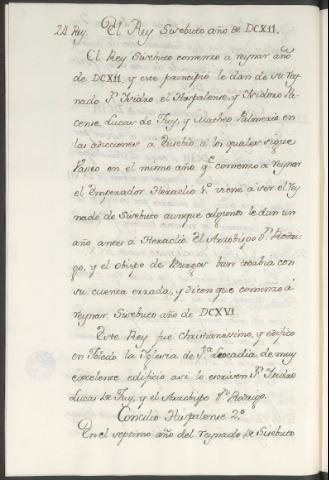 24 Rey. El Rey Sisebuto año de DCXII.
El Rey Sisebuto comenzo a reynar año
de DCXII, y este principio le dan de su rey-
nado Sn. Isidro el Hispalense, y Isidoro Pa-
cense, Lucas de Tuy, y Matheo Palmerio en
las adicciones a Eusebio a los quales sigue
Vaseo en el mismo año qe. comenzo a reynar
el Emperador Heraclio 1º viene a ser el rey
nado de Sisebuto aunque alguno le dan un
año antes a Heraclio. El Arzobispo Dn. Rodri-
go, y el obispo de Burgos han todabia con
su cuenta errada, y dicen que comenzo á
reynar Sisebuto año de DCXVI.
Este Rey fue christianissimo, y edifico
en Toledo la Iglesia de Sta. Leocadia, de muy
excelente edificio asi lo escriven Sn. Isidro
Lucas de Tuy, y el Arzobispo Dn. Rodrigo.
Concilio Hispalense 2º
En el septimo año del reynado de Sisebuto